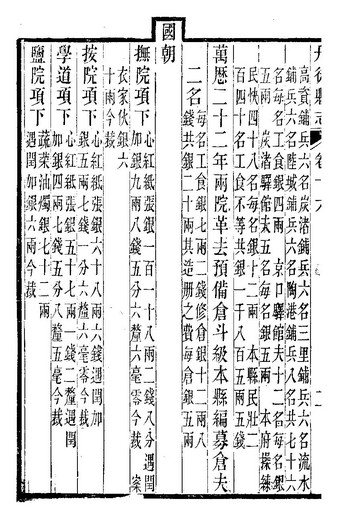 丹徒縣志 卷十六 二
高資鋪兵六名炭渚鋪兵六名三里鋪兵六名流水
鋪兵六名陸城鋪兵六名陶港鋪兵八名共七十六
名每名工食銀四兩 京口驛館夫十二名每名銀
五兩 炭渚驛館夫五名每名銀五兩 本府操練
民快四十八名每名銀十二兩 本縣民壯二
百四十名工食不等共銀一千八百五兩五錢
萬歷二十二年兩院革去預備倉斗級本縣編募倉夫
二名 每名工食銀七兩二錢修倉銀十二兩八
錢共銀二十兩其造册之費每倉銀五兩
國朝
撫院項下 心紅紙張銀一百一十八兩二錢八分遇閏
加銀九兩八錢五分六釐六毫零今裁 案
衣家伙銀六
十兩今裁
按院項下 心紅紙張銀六十八兩六錢遇閏加
銀五兩七錢一分六釐六毫零今裁
學道項下 心紅紙張銀五十七兩二錢二釐遇閏
加銀四兩七錢五分八釐五毫今裁
鹽院項下 蔬菜油燭銀七十二兩
遇閏加銀六兩今裁